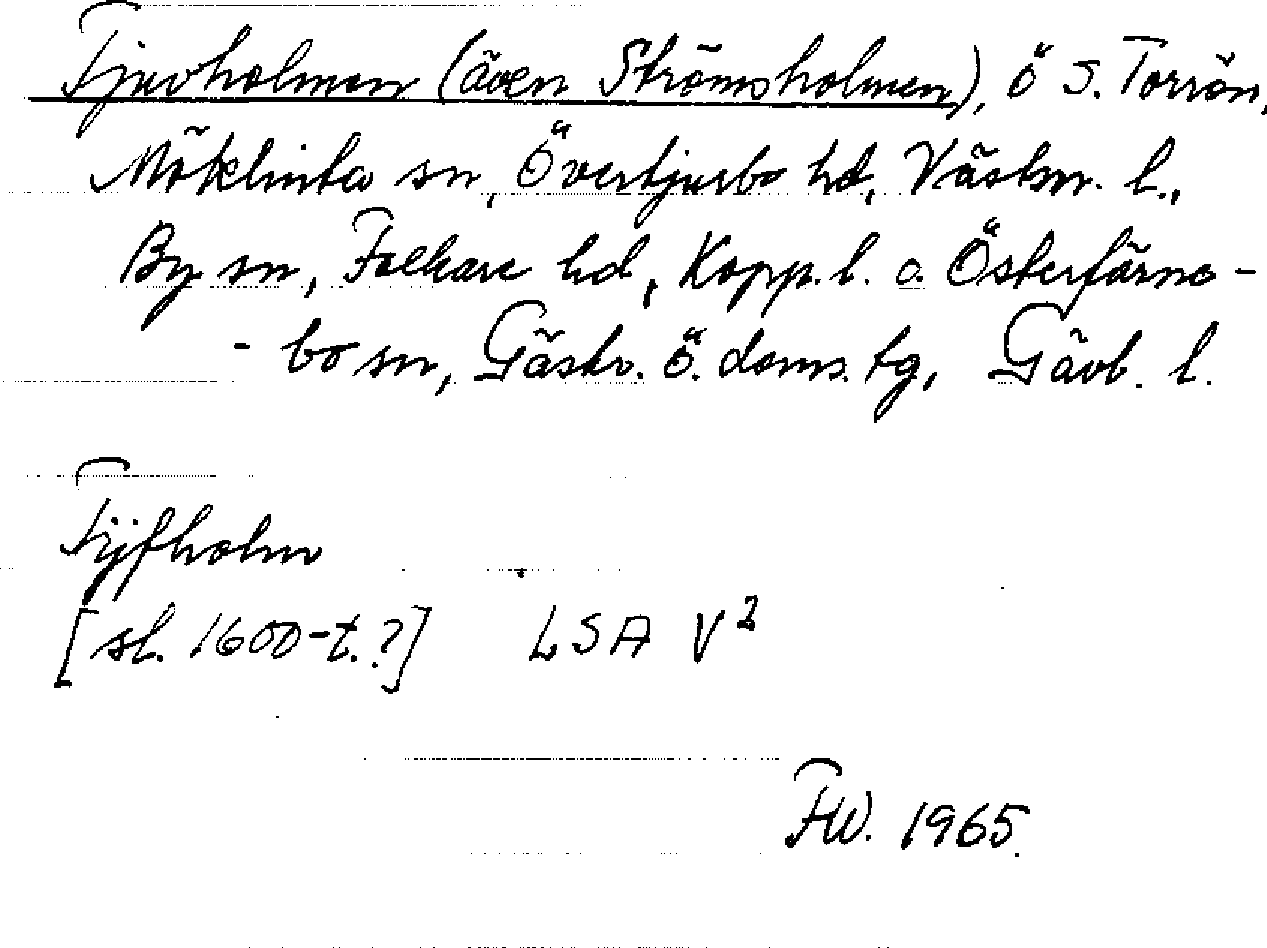 Tjuvholmen (även Strömsholmen), ö S. Torrön,
Möklinta sn, Övertjurbo hd, Västm. l.,
By sn, Folkare hd, Kopp. l. o. Österfärne-
- bo sn, Gästr. ö. doms. tg, Gävl. l.
Tijfholm
[sl. 1600-t.?] LSA V²
FW. 1965.